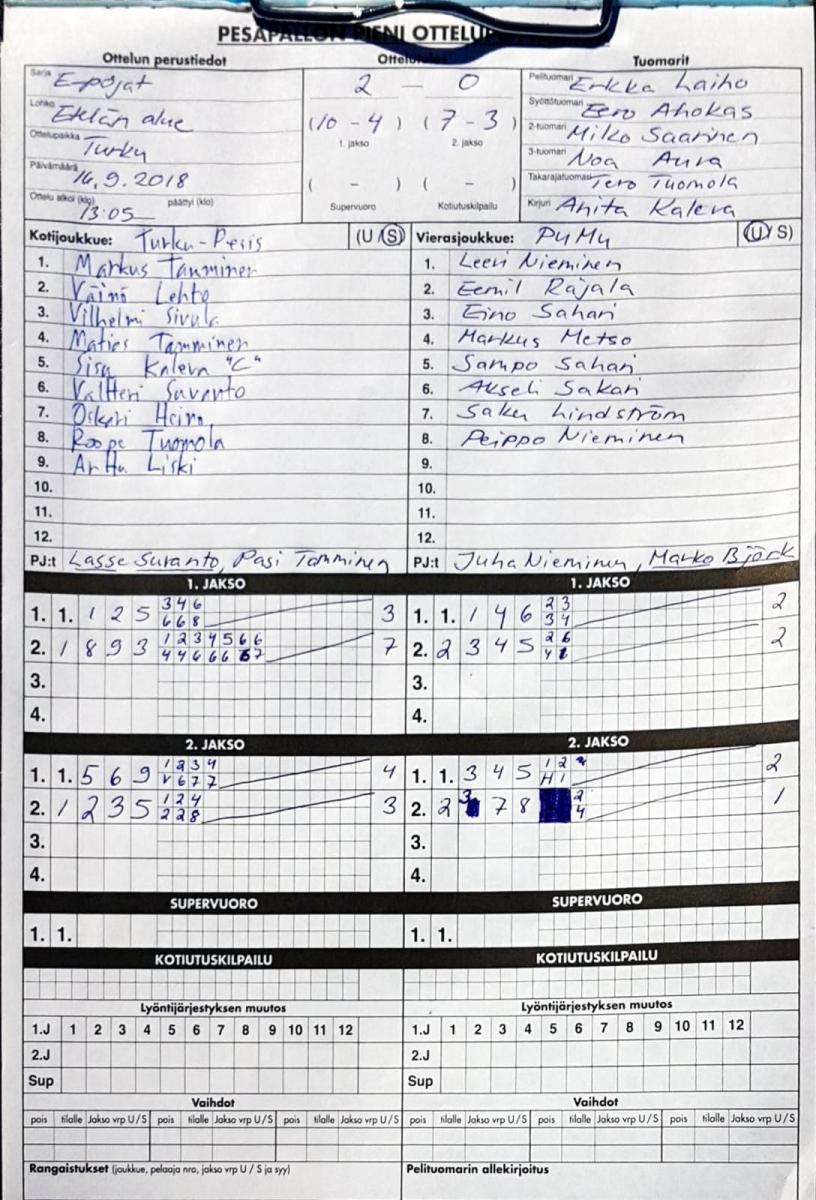 PESÄPALLON PIENI
Ottelun perustiedot
Tuomarit
Sarja E-pojat
Lohko Etelän alue
Ottelupaikka Turku
Päivämäärä 16.9.2018
Ottelu alkoi (klo) 13:05 päättyi (klo)
2 — 0
(10 - 4) (7 - 3)
1. jakso 2. jakso
( - ) ( - )
Supervuoro Kotiutuskilpailu
Pelituomari Erkka Laiho
Syöttötuomari Eero Ahokas
2-tuomari Miko Saarinen
3-tuomari Noa Aura
Takarajatuomari Tero Tuomola
Kirjuri Anita Kaleva
Kotijoukkue: Turku-Pesis (U/S)
1. Markus Tamminen
2. Väinö Lehto
3. Vilhelmi Sivula
4. Matias Tamminen
5. Sisu Kaleva "C"
6. Valtteri Suvanto
7. Oskari Heino
8. Roope Tuomola
9. Arttu Liski
10.
11.
12.
PJ:t Lasse Suvanto, Pasi Tamminen
Vierasjoukkue: PuMu (U/S)
1. Leevi Nieminen
2. Eemil Rajala
3. Eino Sahari
4. Markus Metso
5. Sampo Sahari
6. Akseli Sakari
7. Saku Lindström
8. Peippo Nieminen
9.
10.
11.
12.
PJ:t Juha Nieminen, Marko Björk
1. JAKSO
1. 1. 1 2 5 3 4 6 3
6 6 8
2. 1 8 9 3 1 2 3 4 5 6 6 7
4 4 6 6 6 7
3.
4.
1. JAKSO
1. 1. 1 4 6 2 3 2
3 4
2. 2 3 4 5 2 6 2
4
3.
4.
2. JAKSO
1. 1. 5 6 9 1 2 3 4 4
V 6 7 7
2. 1 2 3 5 1 2 4 3
2 2 8
3.
4.
2. JAKSO
1. 1. 3 4 5 1 2 2
H 1
2. 2 3 7 8 2 1
4
3.
4.
SUPERVUORO
1. 1.
SUPERVUORO
1. 1.
KOTIUTUSKILPAILU
KOTIUTUSKILPAILU
Lyöntijärjestyksen muutos
1.J 1 2 3 4 5 6 7 8 9 10 11 12
2.J
Sup
Lyöntijärjestyksen muutos
1.J 1 2 3 4 5 6 7 8 9 10 11 12
2.J
Sup
Vaihdot
pois tilalle Jakso vrp U/S pois tilalle Jakso vrp U/S pois tilalle Jakso vrp U/S
Vaihdot
pois tilalle Jakso vrp U/S pois tilalle Jakso vrp U/S pois tilalle Jakso vrp U/S
Rangaistukset (joukkue, pelaaja nro, jakso vrp U / S ja syy)
Pelituomarin allekirjoitus